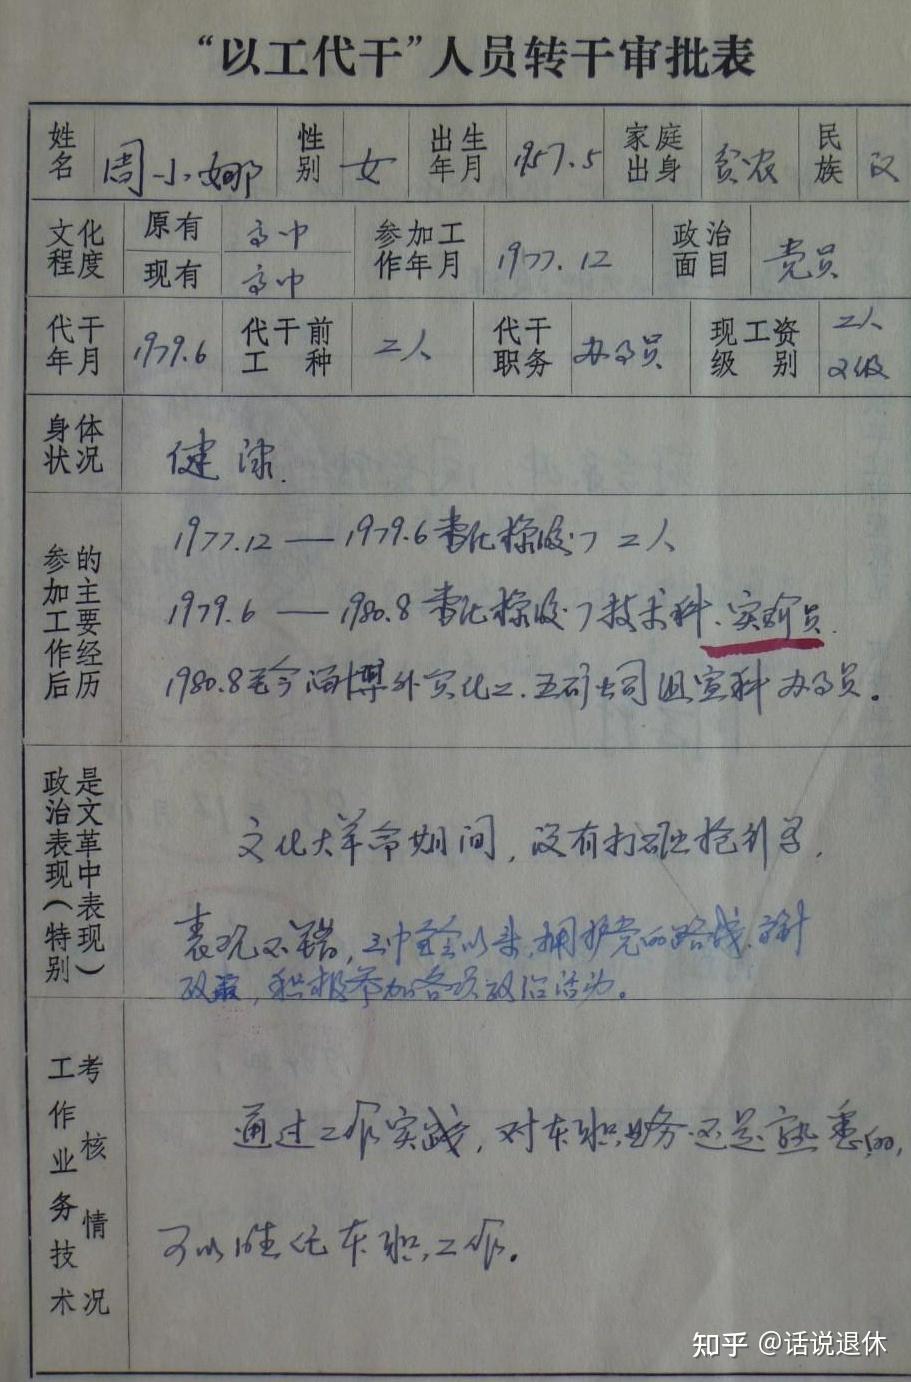 “以工代干”人员转干审批表
姓名 周小娜 性别 女 出生年月 1957.5 家庭出身 贫农 民族 汉
文化程度 原有 高中 参加工作年月 1977.12 政治面目 党员
现有 高中
代干年月 1979.6 代干前工种 工人 代干职务 办事员 现工资级别 工人 2级
身体状况 健康.
参加工作后的主要经历
1977.12 — 1979.6 橡胶厂 工人
1979.6 — 1980.8 橡胶厂技术科.实验员.
1980.8至今淄博外贸化工.五矿公司 科办事员。
政治表现(特别是文革中表现)
文化大革命期间,没有打砸抢行为,
表现不错,三中全会以来,拥护党的路线、方针
政策,积极参加各项政治活动。
工作业务技术考核情况
通过工作实践,对本职业务还是熟悉的,
可以胜任本职工作。
知乎 @话说退休